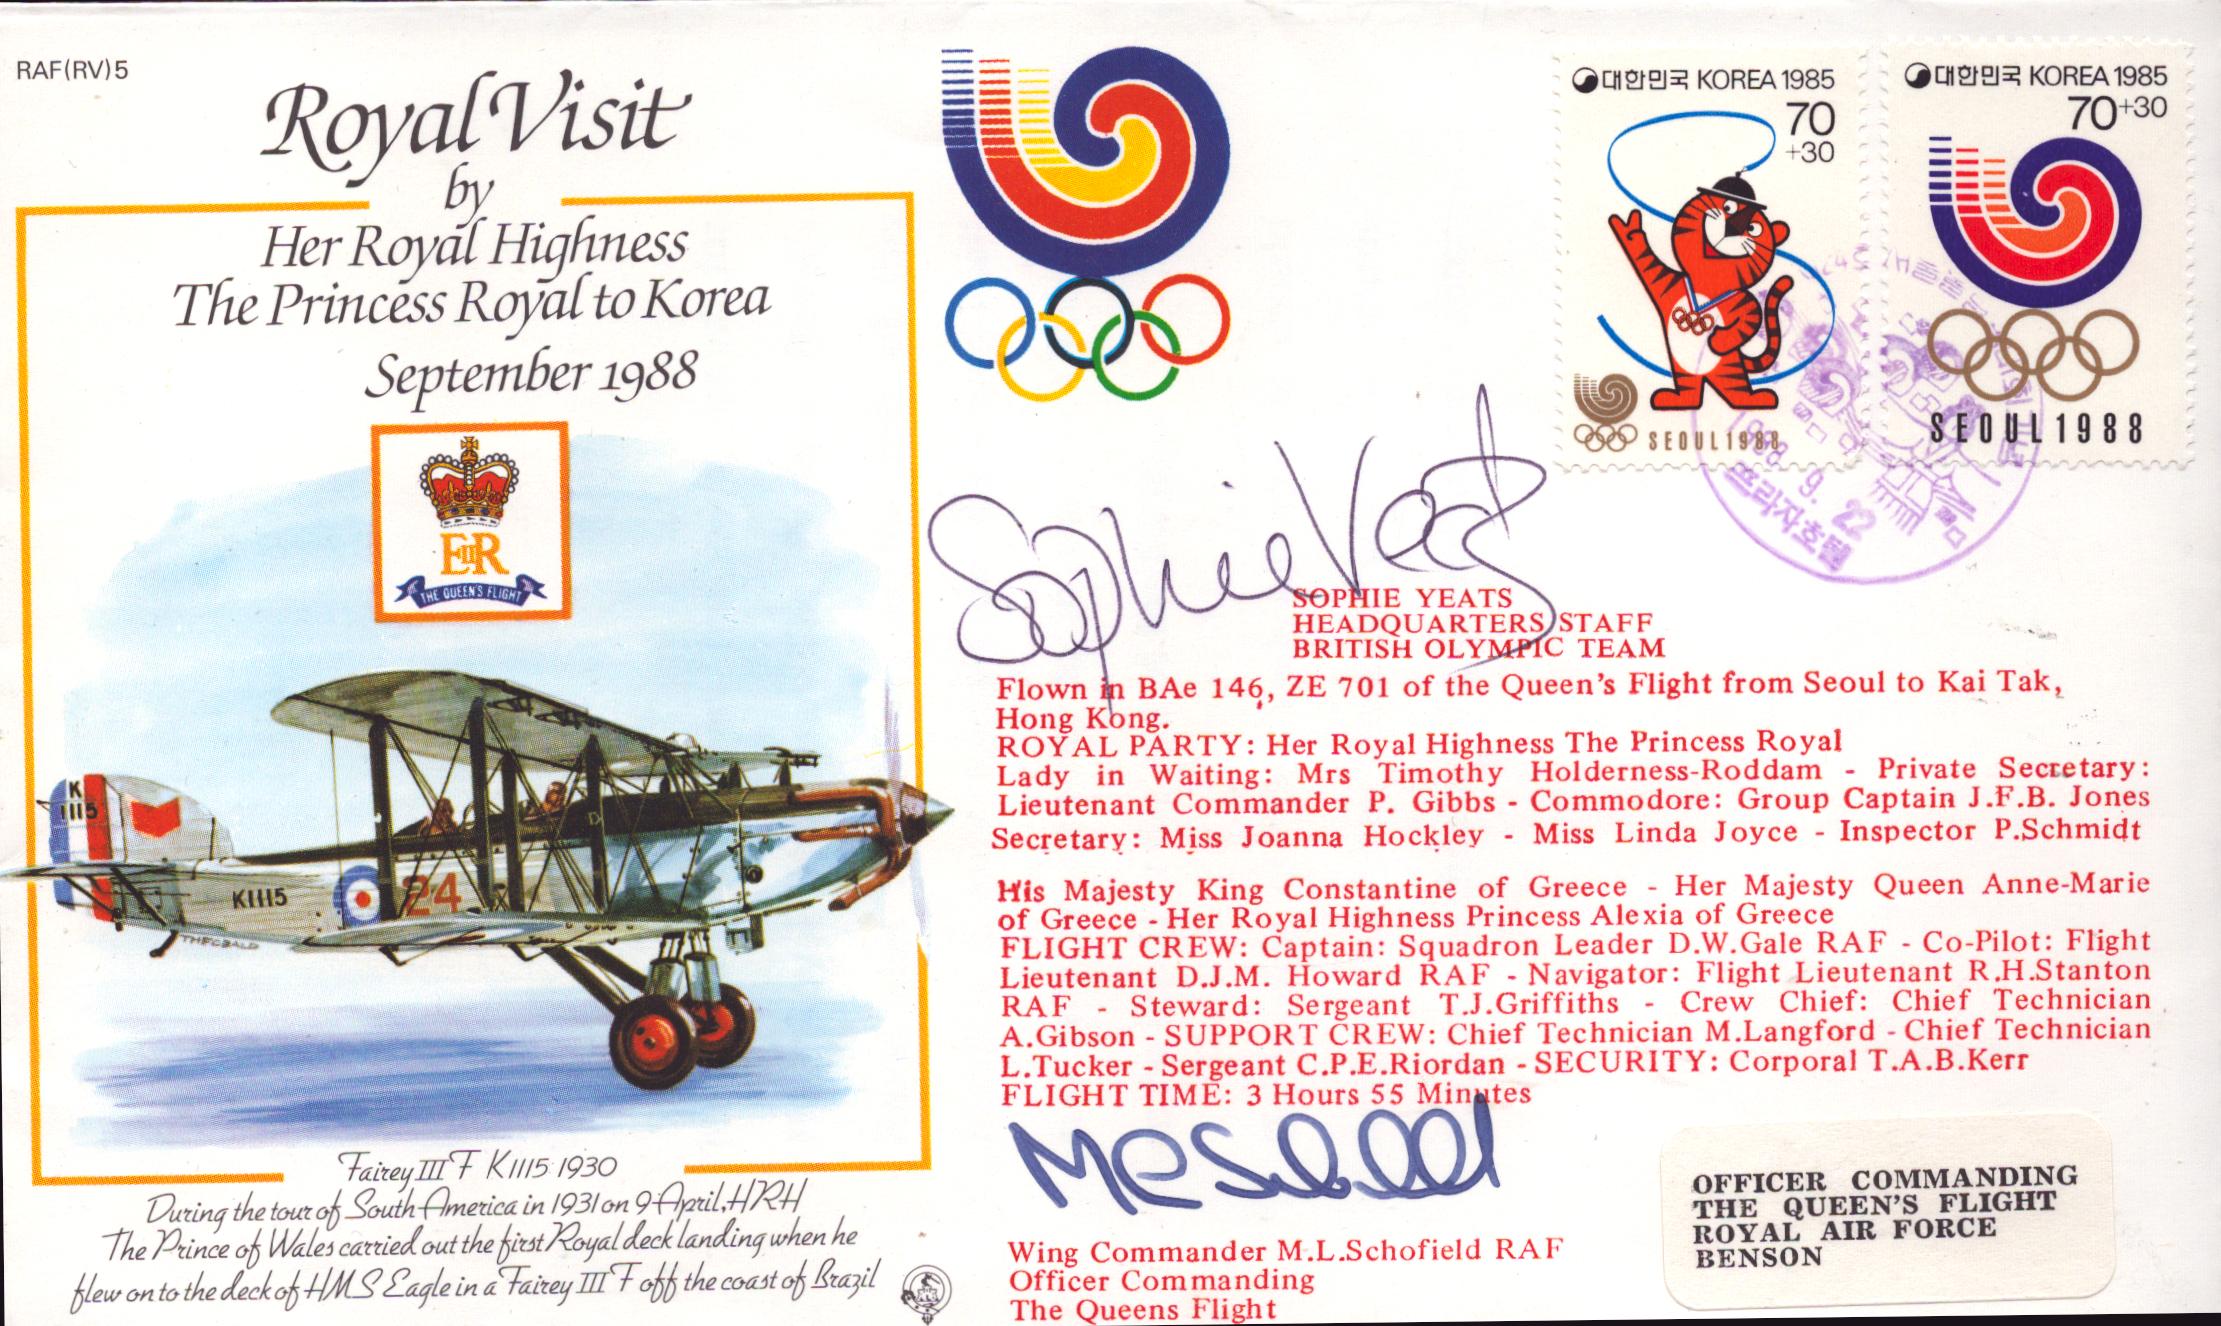 RAF(RV)5
Royal Visit
by
Her Royal Highness
The Princess Royal to Korea
September 1988
EIIR
THE QUEEN'S FLIGHT
K
1115
K1115
24
THEOBALD
Fairey III F K1115 1930
During the tour of South America in 1931 on 9 April, HRH
The Prince of Wales carried out the first Royal deck landing when he
flew on to the deck of HMS Eagle in a Fairey III F off the coast of Brazil
대한민국 KOREA 1985
70
+30
SEOUL 1988
대한민국 KOREA 1985
70+30
SEOUL 1988
1988. 9. 22
프라자호텔
Sophie Yeats
SOPHIE YEATS
HEADQUARTERS STAFF
BRITISH OLYMPIC TEAM
Flown in BAe 146, ZE 701 of the Queen's Flight from Seoul to Kai Tak,
Hong Kong.
ROYAL PARTY: Her Royal Highness The Princess Royal
Lady in Waiting: Mrs Timothy Holderness-Roddam - Private Secretary:
Lieutenant Commander P. Gibbs - Commodore: Group Captain J.F.B. Jones
Secretary: Miss Joanna Hockley - Miss Linda Joyce - Inspector P.Schmidt
His Majesty King Constantine of Greece - Her Majesty Queen Anne-Marie
of Greece - Her Royal Highness Princess Alexia of Greece
FLIGHT CREW: Captain: Squadron Leader D.W.Gale RAF - Co-Pilot: Flight
Lieutenant D.J.M. Howard RAF - Navigator: Flight Lieutenant R.H.Stanton
RAF - Steward: Sergeant T.J.Griffiths - Crew Chief: Chief Technician
A.Gibson - SUPPORT CREW: Chief Technician M.Langford - Chief Technician
L.Tucker - Sergeant C.P.E.Riordan - SECURITY: Corporal T.A.B.Kerr
FLIGHT TIME: 3 Hours 55 Minutes
Wing Commander M.L.Schofield RAF
Officer Commanding
The Queens Flight
OFFICER COMMANDING
THE QUEEN'S FLIGHT
ROYAL AIR FORCE
BENSON